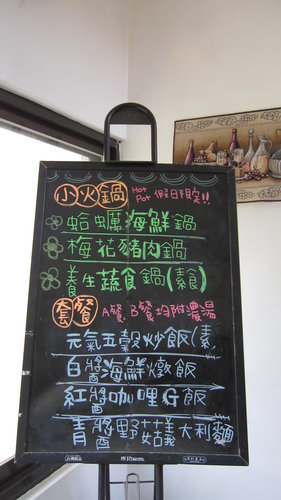 小火鍋 Hot Pot 假日限定!!
蛤蠣海鮮鍋
梅花豬肉鍋
養生蔬食鍋(素食)
套餐 A餐、B餐均附濃湯
元氣五穀炒飯(素)
白醬海鮮燉飯
紅醬咖哩G飯
青醬野菇義大利麵